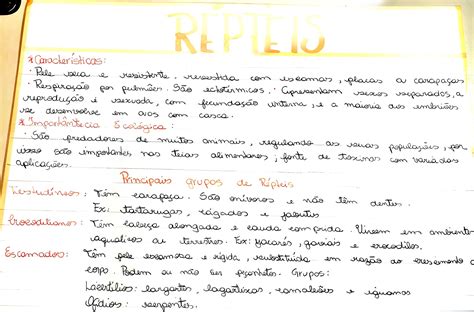 RÉPTEIS
*Características:
· Pele seca e resistente, revestida com escamas, placas ou carapaças
· Respiração por pulmões. São ectotérmicos. · Apresentam sexos separados, a
reprodução é sexuada, com fecundação interna, e a maioria dos embriões
se desenvolve em ovos com casca.
*Importância Ecológica:
· São predadores de muitos animais, regulando as suas populações, por
isso são importantes nas teias alimentares; fonte de toxinas com variadas
aplicações.
Principais grupos de Répteis
Testudíneos: Têm carapaça. São onívoros e não têm dentes.
Ex: tartarugas, cágados e jabutis
Crocodilianos: Têm cabeça alongada e cauda comprida. Vivem em ambientes
aquáticos ou terrestres. Ex: jacarés, gaviais e crocodilos.
Escamados: Têm pele escamosa e rígida, substituída em razão do crescimento do
corpo. Podem ou não ser peçonhentos. Grupos:
Lacertílios: lagartos, lagartixas, camaleões e iguanas
Ofídios: serpentes.